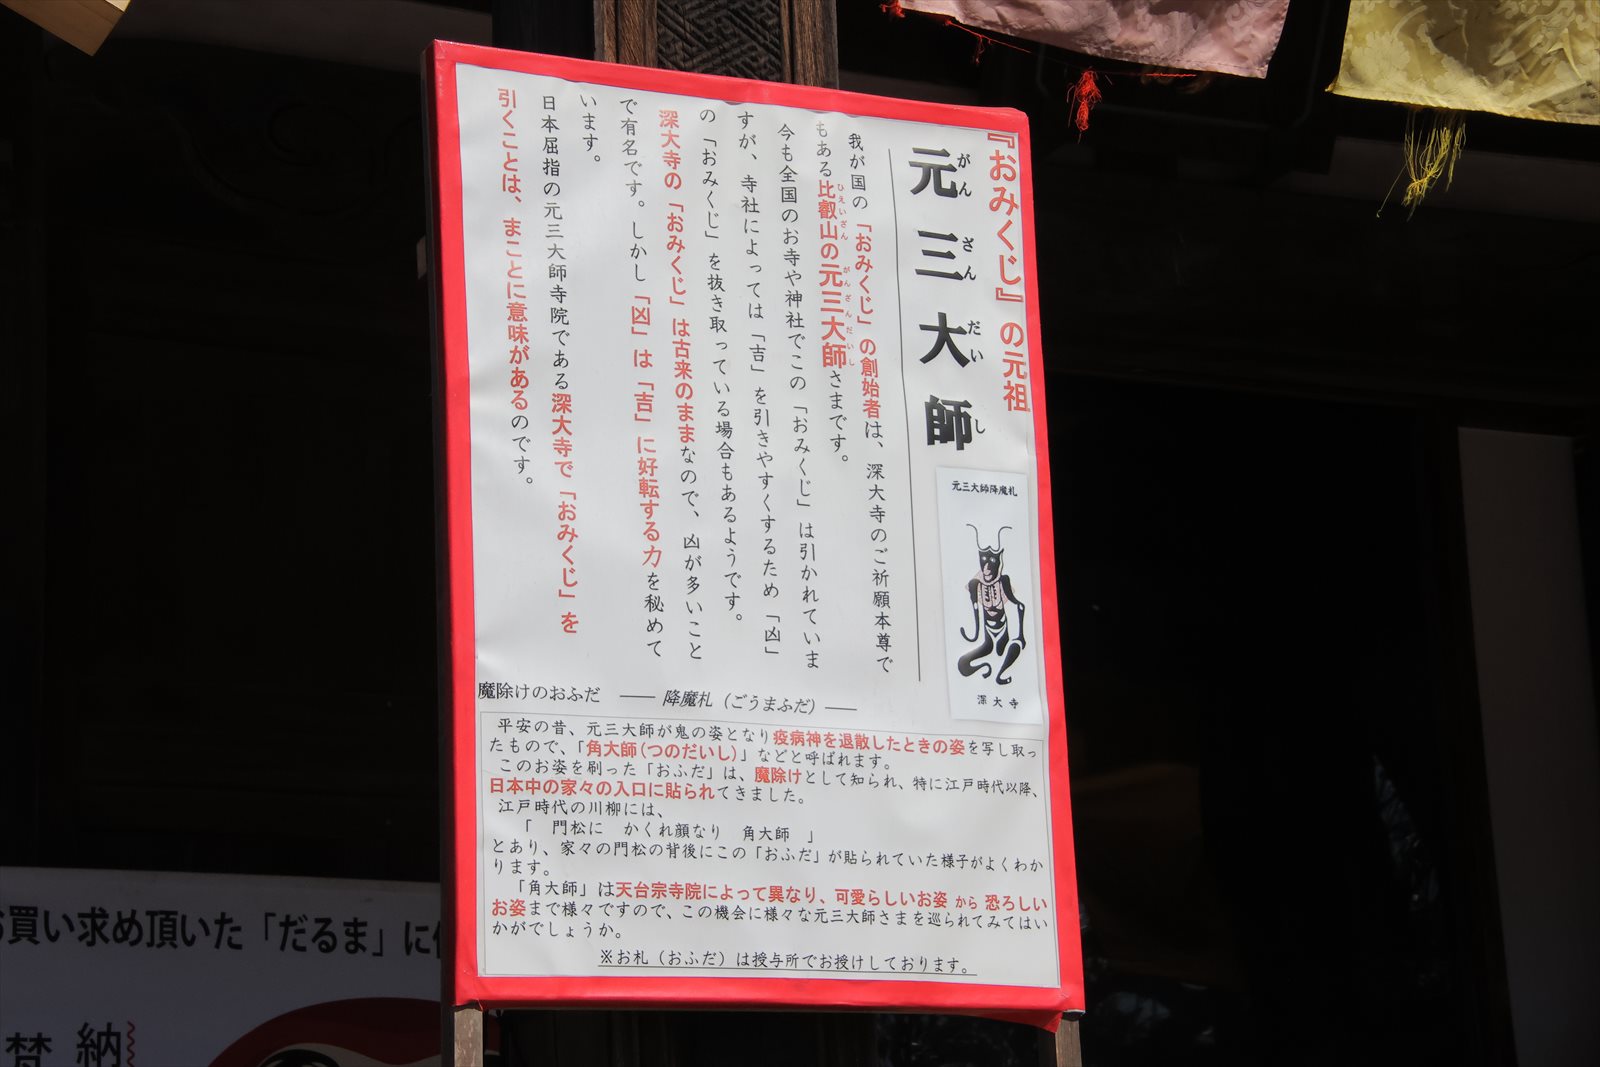 『おみくじ』の元祖
元三大師
がんさんだいし
我が国の「おみくじ」の創始者は、深大寺のご祈願本尊で
もある比叡山の元三大師さまです。
ひえいざん　がんざんだいし
今も全国のお寺や神社でこの「おみくじ」は引かれていま
すが、寺社によっては「吉」を引きやすくするため「凶」
の「おみくじ」を抜き取っている場合もあるようです。
深大寺の「おみくじ」は古来のままなので、凶が多いこと
で有名です。しかし「凶」は「吉」に好転する力を秘めて
います。
日本屈指の元三大師寺院である深大寺で「おみくじ」を
引くことは、まことに意味があるのです。
元三大師降魔札
深大寺
魔除けのおふだ　―― 降魔札（ごうまふだ）――
平安の昔、元三大師が鬼の姿となり疫病神を退散したときの姿を写し取っ
たもので、「角大師（つのだいし）」などと呼ばれます。
このお姿を刷った「おふだ」は、魔除けとして知られ、特に江戸時代以降、
日本中の家々の入口に貼られてきました。
江戸時代の川柳には、
「　門松に　かくれ顔なり　角大師　」
とあり、家々の門松の背後にこの「おふだ」が貼られていた様子がよくわか
ります。
「角大師」は天台宗寺院によって異なり、可愛らしいお姿 から 恐ろしい
お姿まで様々ですので、この機会に様々な元三大師さまを巡られてみてはい
かがでしょうか。
※お札（おふだ）は授与所でお授けしております。
買い求め頂いた「だるま」に
納
梵